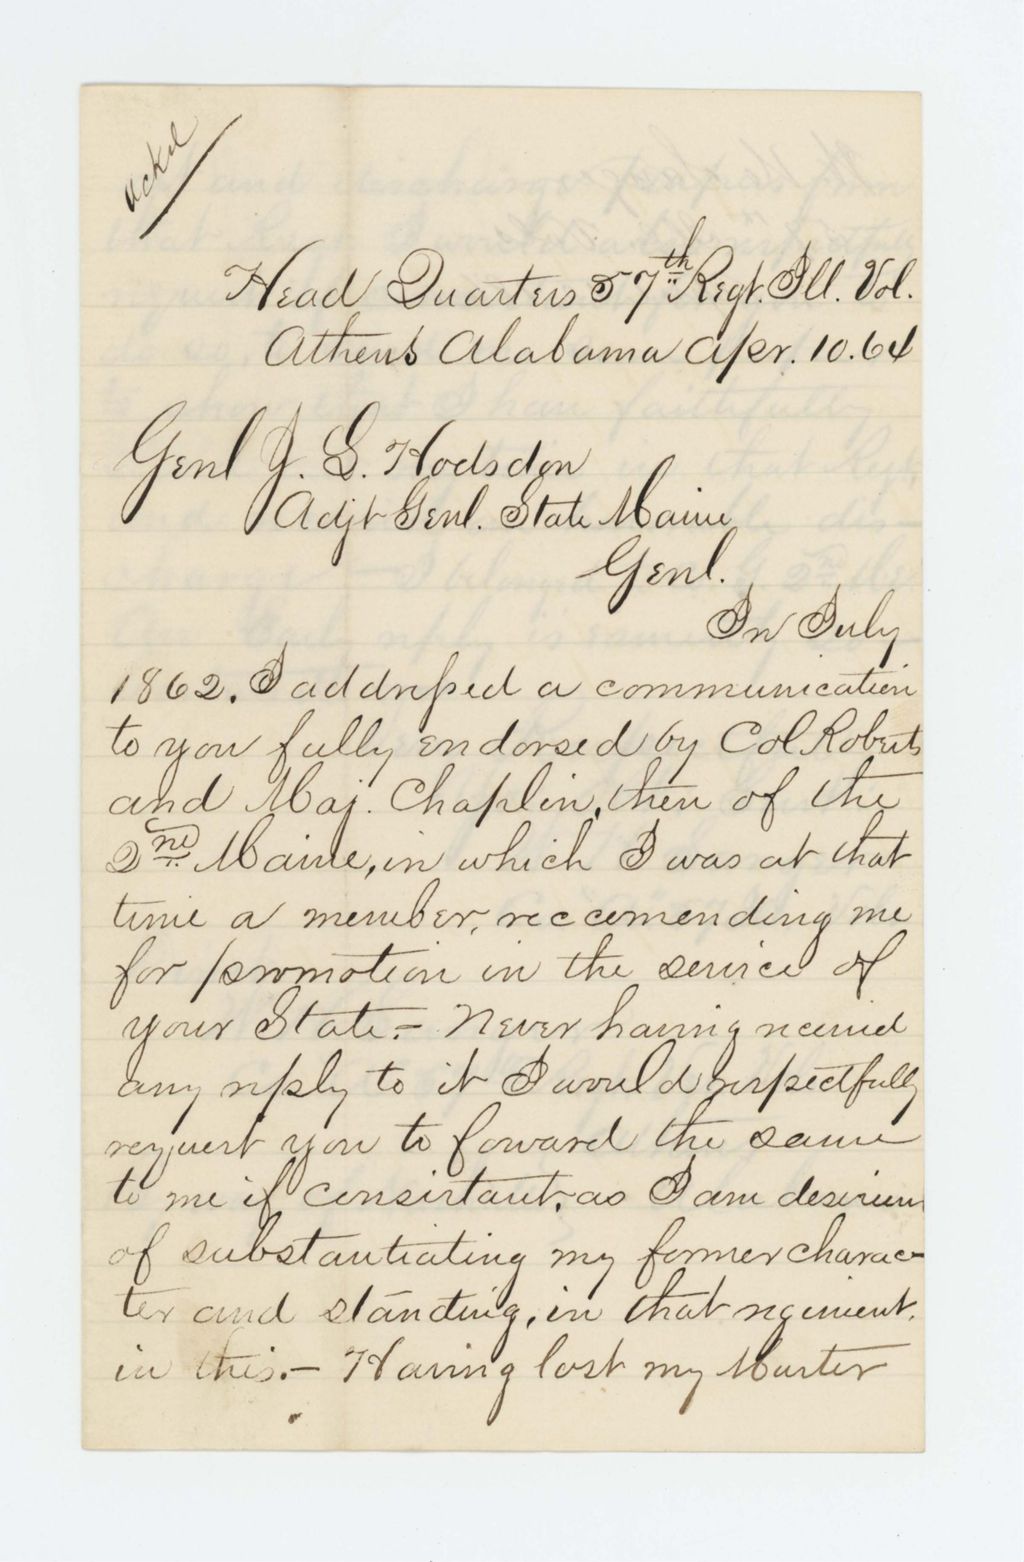 Ackd
Head Quarters 57th Regt. Ill. Vol.
Athens Alabama Apr. 10. 64
Genl J. L. Hodsdon
Adjt Genl. State Maine
Genl.
In July
1862. I addressed a communication
to you fully endorsed by Col Roberts
and Maj. Chaplin, then of the
2nd Maine, in which I was at that
time a member, reccomending me
for promotion in the service of
your State.- Never having received
any reply to it I would respectfully
request you to foward the same
to me if consistant, as I am desirious
of substantiating my former charac-
ter and standing, in that regiment.
in this.- Having lost my Muster